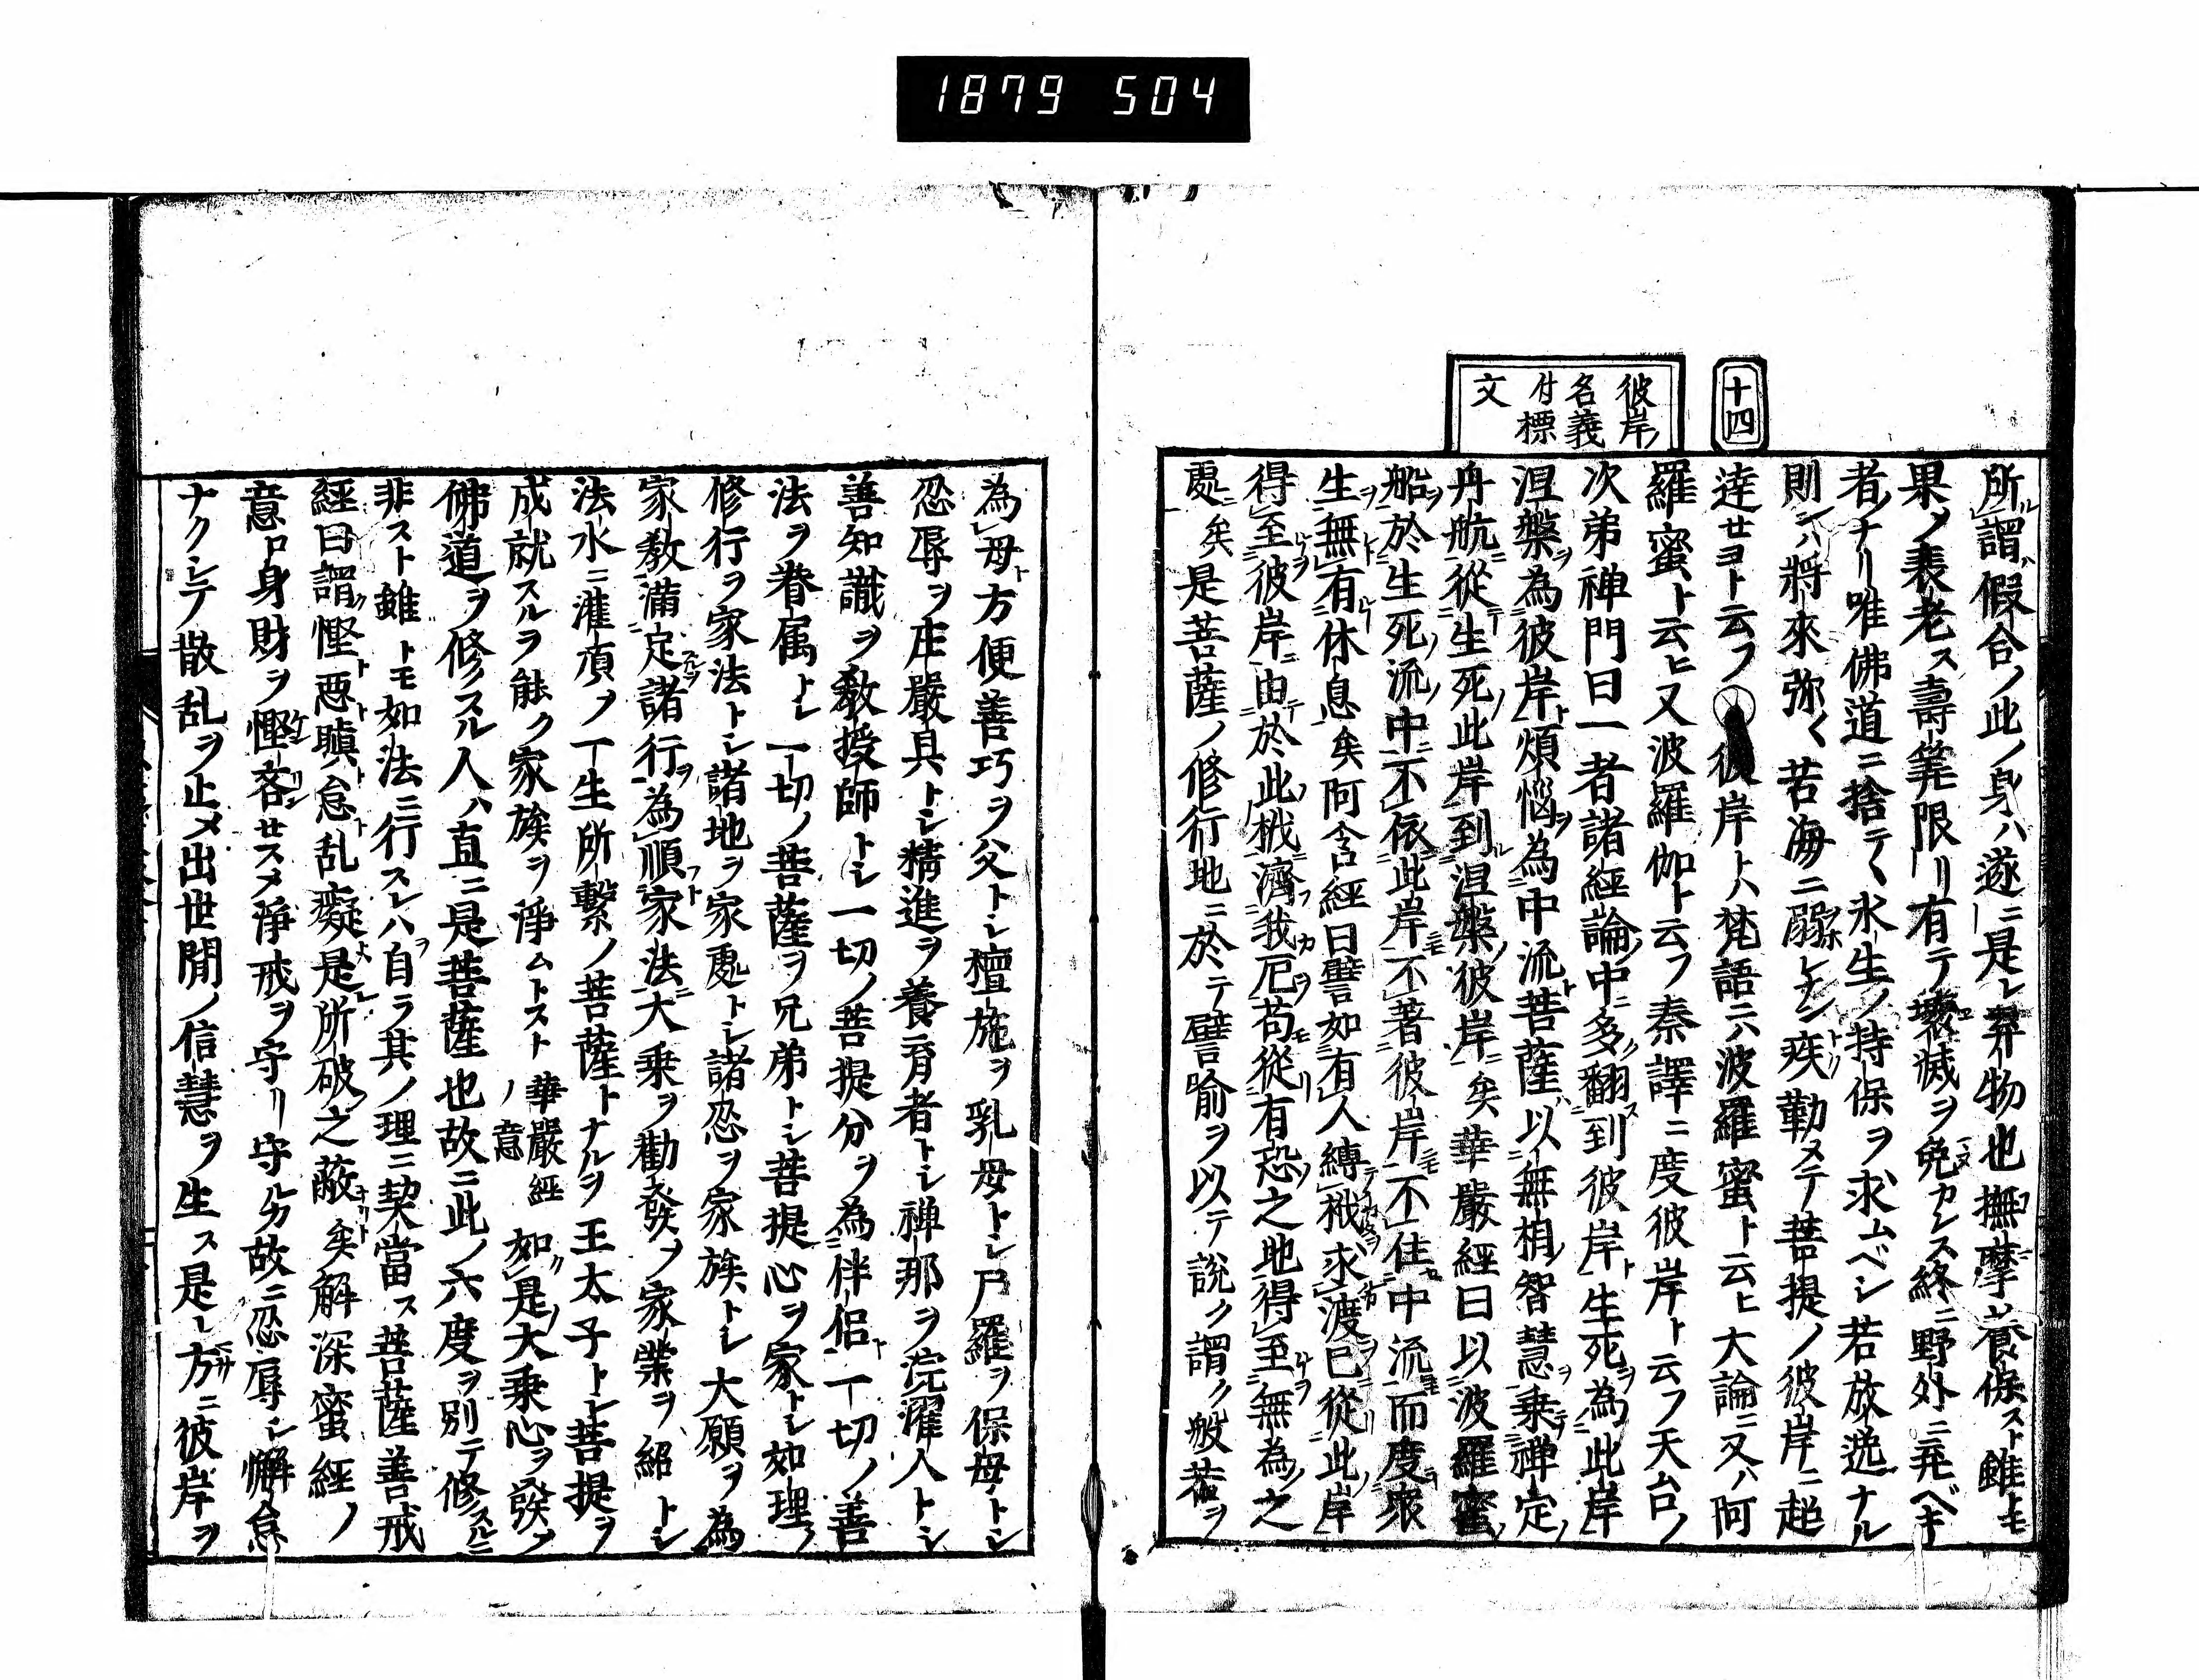 1879 504
十四
彼岸ノ
名義
付標
文
所謂ル假合ノ此ノ身ハ遂ニ是レ弃物也撫摩シ養保スト雖トモ
果ノ衰老ス壽筭限リ有テ壞滅ヲ免カレス終ニ野外ニ弃ベキ
者ナリ唯佛道ニ捨テヽ永生ノ持保ヲ求ムベシ若放逸ナル
則ハ將來弥〱苦海ニ溺レナン疾ク勤メテ菩提ノ彼岸ニ超
達セヨト云フ○彼岸トハ梵語ニハ波羅蜜ト云ヒ大論ニ又ハ阿
羅蜜ト云ヒ又波羅伽ト云フ秦譯ニ度彼岸ト云フ天台ノ
次第禅門曰一者諸經論中多翻到彼岸生死為此岸
涅槃為彼岸煩惱為中流菩薩以無相智慧乗禅定
舟航從生死此岸到涅槃彼岸矣華嚴經曰以波羅蜜
船於生死流中不依此岸不著彼岸不住中流而度衆
生無有休息矣阿含經曰譬如有人縛栰求渡已從此岸
得至彼岸由於此栰濟我厄苟從有恐之地得至無為之
處矣是菩薩ノ修行地ニ於テ譬喻ヲ以テ説ク謂ク般若ヲ
為母方便善巧ヲ父トシ檀施ヲ乳母トシ尸羅ヲ保母トシ
忍辱ヲ庄嚴具トシ精進ヲ養育者トシ禅那ヲ浣濯人トシ
善知識ヲ教授師トシ一切ノ菩提分ヲ為伴侶一切ノ善
法ヲ眷属トシ一切ノ菩薩ヲ兄弟トシ菩提心ヲ家トシ如理ノ
修行ヲ家法トシ諸地ヲ家處トシ諸忍ヲ家族トシ大願ヲ為
家教滿足諸行為順家法大乗ヲ勸發ノ家業ヲ紹トシ
法水ニ灌頂ノ一生所繋ノ菩薩トナルヲ王太子トシ菩提ヲ
成就スルヲ能ク家族ヲ淨ムトスト華嚴經ノ意如是大乗心ヲ發ノ
佛道ヲ修スル人ハ直ニ是菩薩也故ニ此ノ六度ヲ別テ修スルニ
非スト雖トモ如法ニ行スレハ自ラ其ノ理ニ契當ス菩薩善戒
經曰謂慳惡瞋怠乱癡是所破之蔽矣解深蜜經ノ
意ロ身財ヲ慳吝セスメ淨戒ヲ守リ守ルカ故ニ忍辱シ懈怠
ナクシテ散乱ヲ止メ出世間ノ信慧ヲ生ス是レ方ニ彼岸ヲ